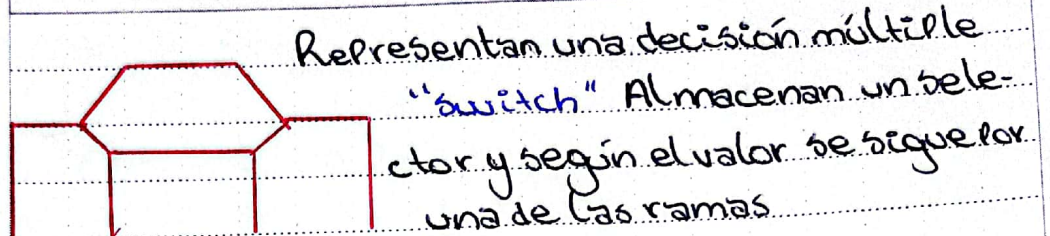 Representan una decisión múltiple
"switch" Almacenan un sele-
ctor y según el valor se sigue por
una de las ramas